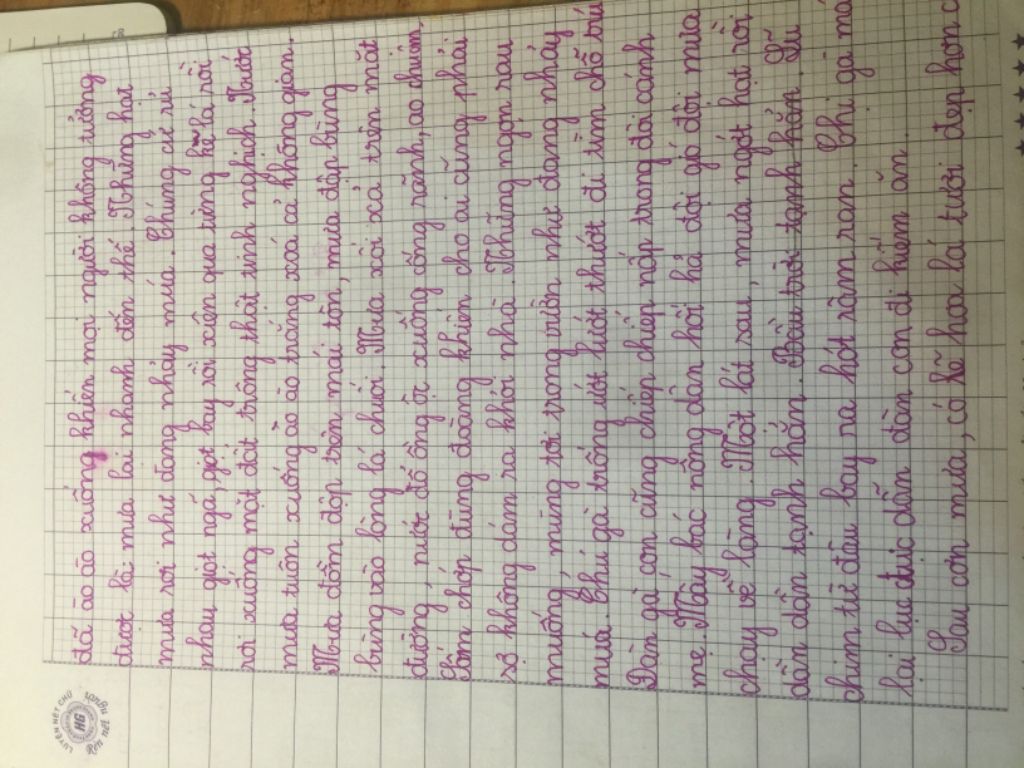 đã ào ào xuống khiến mọi người không tưởng
được là mưa lại nhanh đến thế. Những hạt
mưa rơi như đang nhảy múa. Chúng cứ rủ
nhau giọt ngã, giọt bay rồi xiên qua từng kẽ lá rồi
rơi xuống mặt đất trông thật tinh nghịch. Nước
mưa tuôn xuống ào ào trắng xoá cả không gian.
Mưa dồn dập trên mái tôn, mưa đập bùng
bùng vào lòng lá chuối. Mưa xối xả trên mặt
đường, nước đổ ồng ộc xuống cống rãnh, ao chuôm.
Sấm chớp đùng đoàng khiến cho ai cũng phải
sợ không dám ra khỏi nhà. Những ngọn rau
muống, mùng tơi trong vườn như đang nhảy
múa. Chú gà trống ướt lướt thướt đi tìm chỗ trú
Đàn gà con cũng chiếp chiếp nấp trong đôi cánh
mẹ. Mấy bác nông dân hối hả đội gió đội mưa
chạy về làng. Một lát sau, mưa ngớt hạt rồi
dần dần tạnh hẳn. Bầu trời tạnh hẳn. Lũ
chim từ đâu bay ra hót râm ran. Chị gà má
lại lục đục dẫn đàn con đi kiếm ăn.
Sau cơn mưa, có lẽ hoa lá tươi đẹp hơn
LUYỆN NÉT CHỮ
HG
Rèn nết người